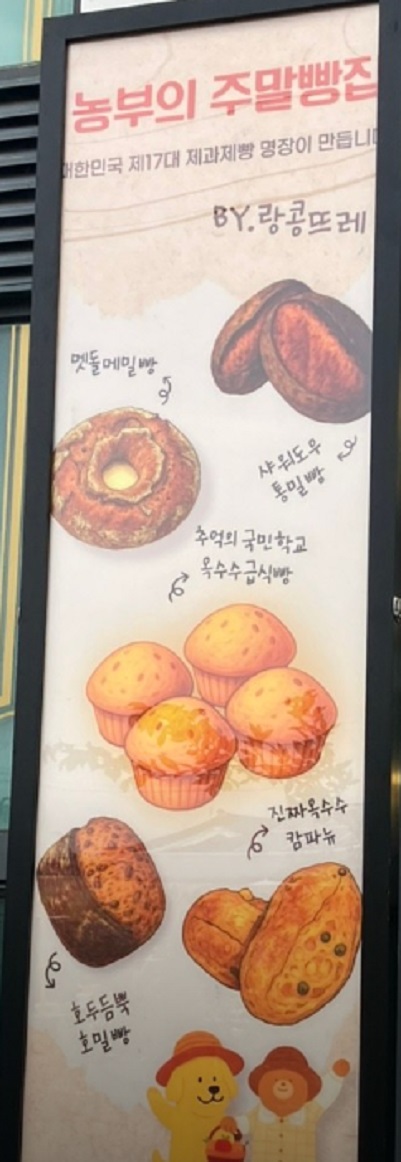 농부의 주말빵집
대한민국 제17대 제과제빵 명장이 만듭니다
BY.랑콩뜨레
멧돌메밀빵
샤워도우
통밀빵
추억의 국민학교
옥수수급식빵
진짜옥수수
캄파뉴
호두듬뿍
호밀빵